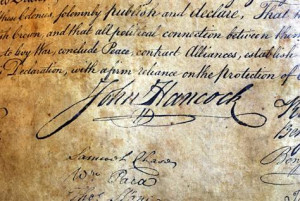 these Colonies, solemnly publish and declare, That
Crown and that all political connection between them
to levy War, conclude Peace, contract Alliances, establish
Declaration, with a firm reliance on the protection of
John Hancock
Samuel Chase
Wm Paca
Thos Stone